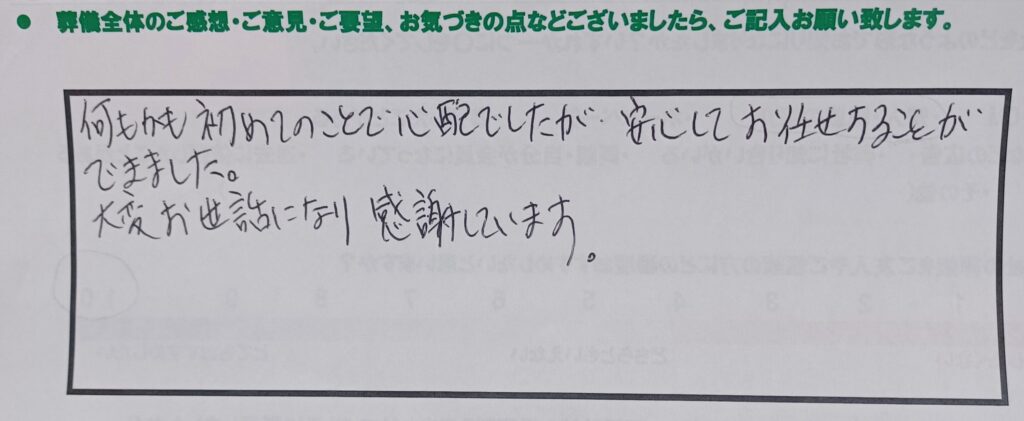 ● 葬儀全体のご感想・ご意見・ご要望、お気づきの点などございましたら、ご記入お願い致します。
何もかも初めてのことで心配でしたが 安心してお任せすることが
できました。
大変お世話になり 感謝しています。